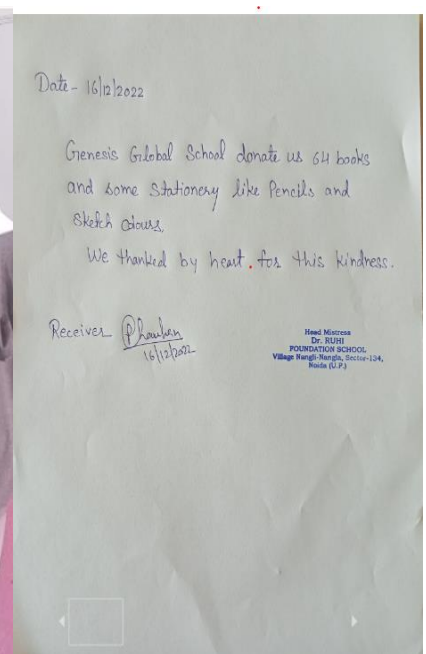 Date- 16/12/2022
Genesis Global School donate us 64 books
and some Stationery like Pencils and
Sketch Colours.
We thanked by heart. for this kindness.
Receiver PChauhan
16/12/2022
Head Mistress
Dr. RUHI
FOUNDATION SCHOOL
Village Nangli-Nangla, Sector-134,
Noida (U.P.)